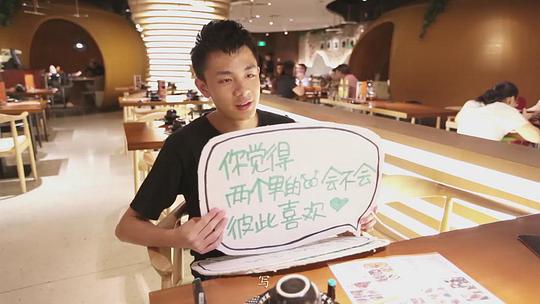 你觉得
两个男的会不会
彼此喜欢
写